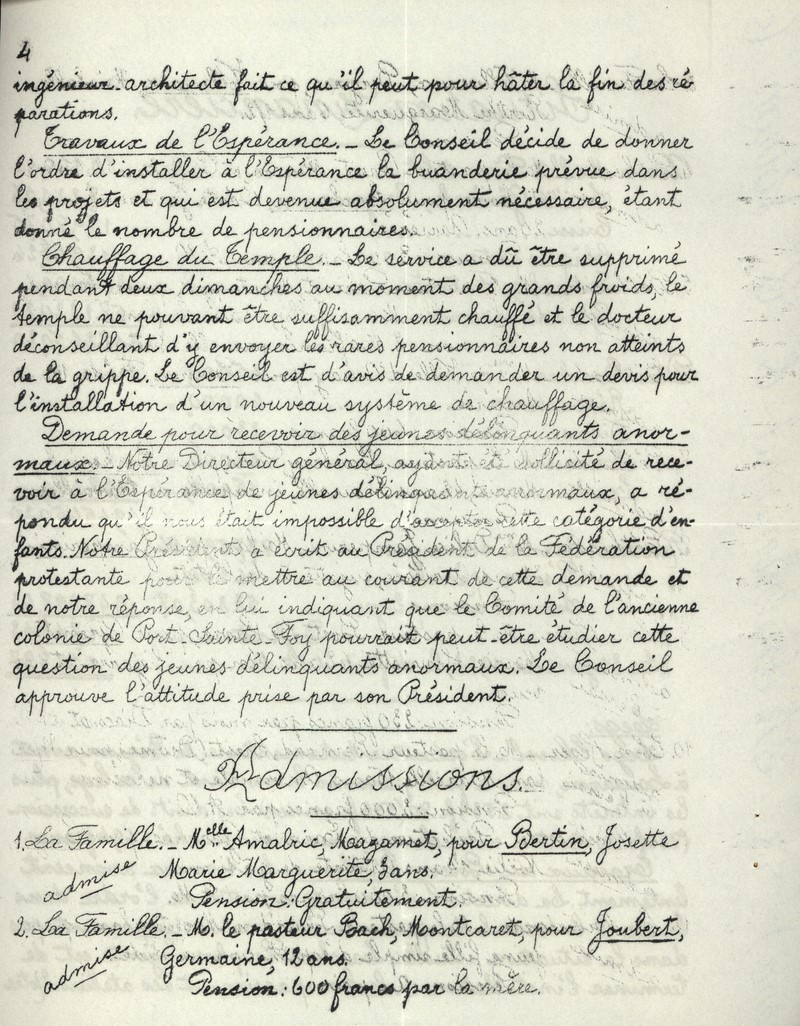 4
ingénieur-architecte fait ce qu'il peut pour hâter la fin des ré-
parations.
Travaux de l'Espérance._ Le Conseil décide de donner
l'ordre d'installer à l'Espérance la buanderie prévue dans
les projets et qui est devenue absolument nécessaire, étant
donné le nombre de pensionnaires.
Chauffage du Temple._ Le service a dû être supprimé
pendant deux dimanches au moment des grands froids, le
temple ne pouvant être suffisamment chauffé et le docteur
déconseillant d'y envoyer les rares pensionnaires non atteints
de la grippe. Le Conseil est d'avis de demander un devis pour
l'installation d'un nouveau système de chauffage.
Demande pour recevoir des jeunes délinquants anor-
maux._ Notre Directeur général, ayant été sollicité de rece-
voir à l'Espérance de jeunes délinquants anormaux, a ré-
pondu qu'il nous était impossible d'accepter cette catégorie d'en-
fants. Notre Président a écrit au Président de la Fédération
protestante pour le mettre au courant de cette demande et
de notre réponse, en lui indiquant que le Comité de l'ancienne
colonie de Port-Sainte-Foy pourrait peut-être étudier cette
question des jeunes délinquants anormaux. Le Conseil
approuve l'attitude prise par son Président.
Admissions.
1. La Famille._ Melle Amalric, Mazamet, pour Bertin, Josette
admise Marie Marguerite, 3 ans.
Pension: Gratuitement.
2. La Famille._ M. le pasteur Bach, Montcaret, pour Joubert,
admise Germaine, 12 ans.
Pension: 600 francs par la mère.